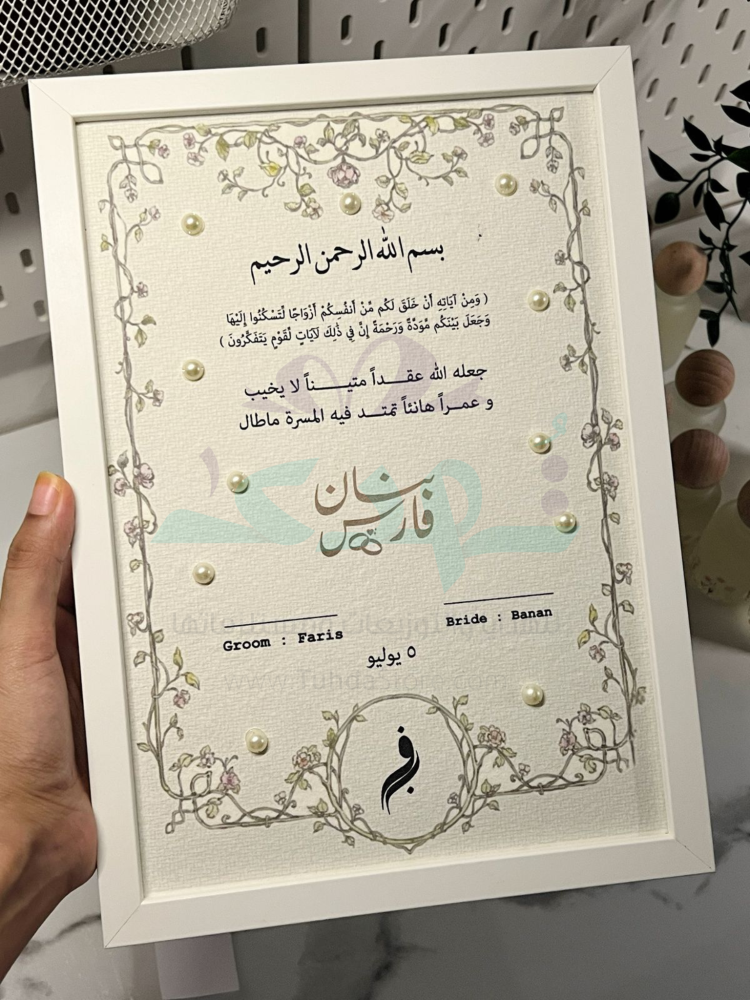 بسم الله الرحمن الرحيم
( وَمِنْ آيَاتِهِ أَنْ خَلَقَ لَكُم مِّنْ أَنفُسِكُمْ أَزْوَاجًا لِّتَسْكُنُوا إِلَيْهَا
وَجَعَلَ بَيْنَكُم مَّوَدَّةً وَرَحْمَةً إِنَّ فِي ذَٰلِكَ لَآيَاتٍ لِّقَوْمٍ يَتَفَكَّرُونَ )
جعله الله عقـــداً متيـــــناً لا يخيب
و عمـراً هانئاً تمتـد فيه المسرة ماطال
بنان
فارس
Groom : Faris
Bride : Banan
٥ يوليو